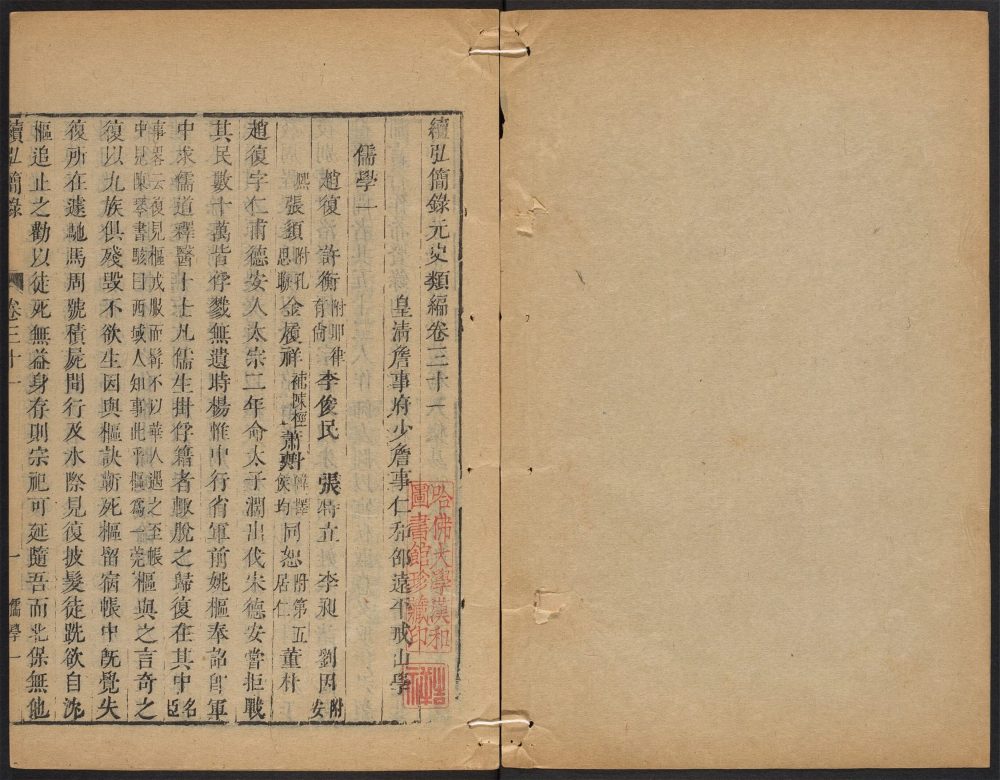 續弘簡錄元史類編卷三十一
皇清詹事府少詹事仁和邵遠平戒山學
儒學一
趙復 許衡 附耶律有尚 李俊民 張特立 李昶 劉因 附安
熙 張𩓣 附孔思 金履祥 蕭𣂏 韓擇侯均 同恕 附第五居仁 董朴
趙復字仁甫德安人太宗二年命太子濶出伐宋德安嘗拒戰
其民數十萬皆俘戮無遺時楊惟中行省軍前姚樞奉詔卽軍
中求儒道釋醫卜士凡儒生掛俘籍者輙脫之歸復在其中 名臣
事畧云復見樞戎服而髯不以華人遇之至帳
中見陳琴書駭曰西域人知事此乎樞爲一莞 樞與之言奇之
復以九族俱殘毀不欲生因與樞訣蘄死樞留宿帳中旣覺失
復所在遽馳馬周號積屍間行及水際見復披髮徒跣欲自沈
樞追止之勸以徒死無益身存則宗祀可延隨吾而北保無他
續弘簡錄 卷三十一 一 儒學一
哈佛大學漢和圖書館珍藏印